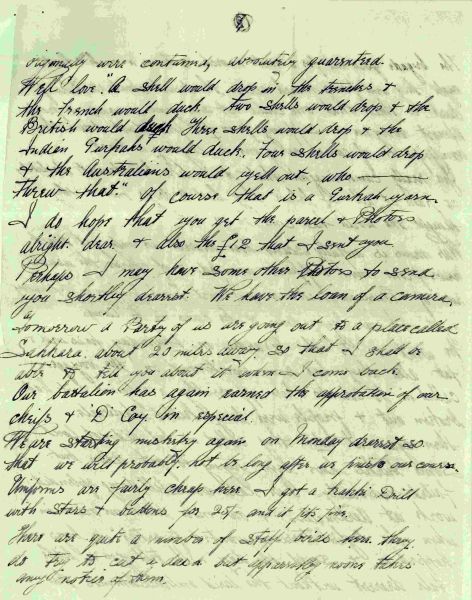 originally were contained, absolutely guaranteed.
Well love. "A shell would drop in the trenches &
the French would duck. Two shells would drop & the
British would duck. Three shells would drop & the
Indian Gurkhas would duck. Four shells would drop
& the Australians would yell out who ———
threw that." Of course that is a Gurkah yarn.
I do hope that you get the parcel & Photos
alright dear & also the £12 that I sent you
Perhaps I may have some other Photos to send
you shortly dearest. We have the loan of a camera
tomorrow a Party of us are going out to a place called
Sakkara. about 20 miles away, so that I shall be
able to tell you about it when I come back.
Our battalion has again earned the approbation of our
chiefs & D Coy. in especial.
We are starting musketry again on Monday dearest so
that we will probably not be long after we finish our course.
Uniforms are fairly cheap here. I got a Kahki Drill
with Stars & buttons for 25/- and it fits fine.
There are quite a number of Staff birds here. they
do try to cut a dash but apparently noone takes
any notice of them.